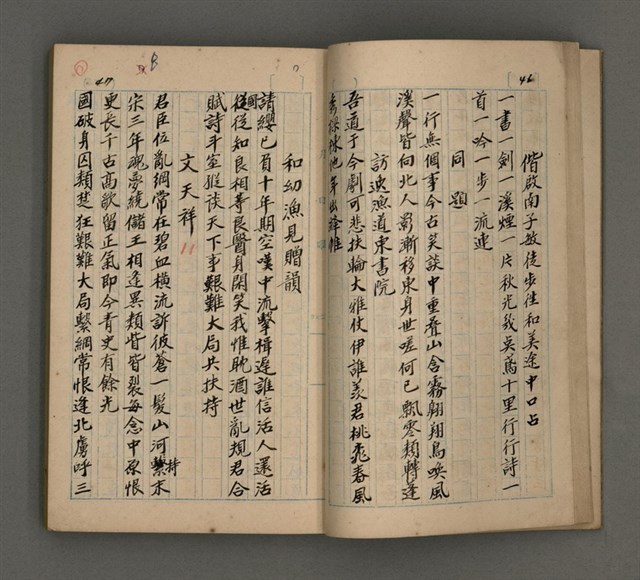 46
偕啟南子敏徒步往和美途中口占
一書一劍一溪煙一片秋光幾吳鳶十里行行詩一
首一吟一步一流連
同題
一行無個事今古笑談中重疊山含霧翱翔鳥喚風
溪聲皆向北人影漸移東身世嗟何已飄零類轉蓬
訪逸漁道東書院
吾道于今劇可悲扶輪大雅仗伊誰羨君桃李春風
47
8
和幼漁見贈韻
請纓已負十年期空嘆中流擊楫遲誰信活人還活
國從知良相等良醫身閑笑我惟耽酒世亂規君合
賦詩斗室縱談天下事艱難大局共扶持
文天祥
君臣位亂綱常在碧血橫流訴彼蒼一髮山河繫末
持
宋三年魂夢繞儲王相逢異類皆眥裂每念中原恨
更長千古高歌留正氣即今青史有餘光
國破身囚類楚狂艱難大局繫綱常恨逢北虜呼三